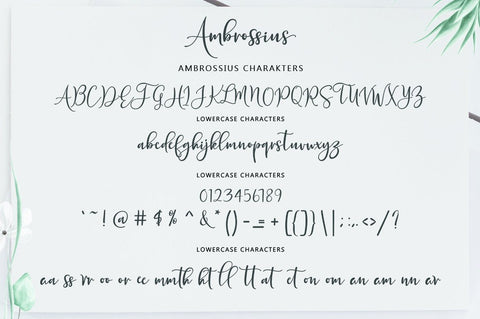 Ambrossius
AMBROSSIUS CHARAKTERS
ABCDEFGHIJKLMNOPQRSTUVWXYZ
LOWERCASE CHARACTERS
abcdefghijklmnopqrstuvwxyz
LOWERCASE CHARACTERS
0123456189
`~!@#$%^&*()-_=+[{]}\|;:,.<>/?
LOWERCASE CHARACTERS
aa ss rr oo or ee mmth ht ll tt at ct on om an am nn ar